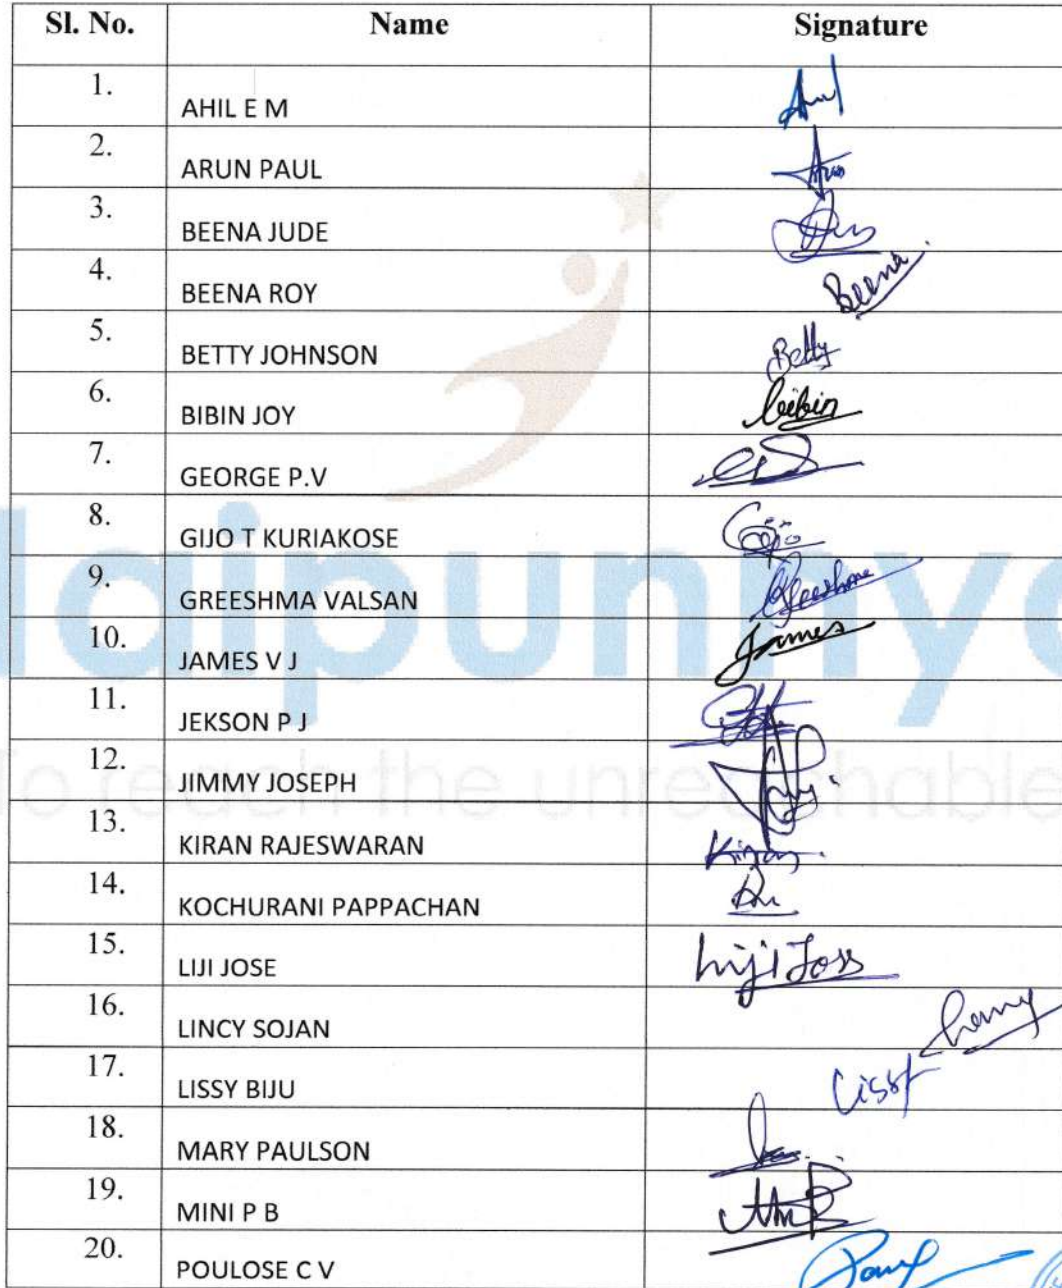 Sl. No. Name Signature
1. AHIL E M
2. ARUN PAUL Arun
3. BEENA JUDE
4. BEENA ROY Beena
5. BETTY JOHNSON Betty
6. BIBIN JOY bibin
7. GEORGE P.V
8. GIJO T KURIAKOSE Gijo
9. GREESHMA VALSAN Greeshma
10. JAMES V J James
11. JEKSON P J
12. JIMMY JOSEPH
13. KIRAN RAJESWARAN Kiran
14. KOCHURANI PAPPACHAN
15. LIJI JOSE Liji Jose
16. LINCY SOJAN
17. LISSY BIJU Lissy
18. MARY PAULSON
19. MINI P B
20. POULOSE C V
aipunnya
To reach the unreachable